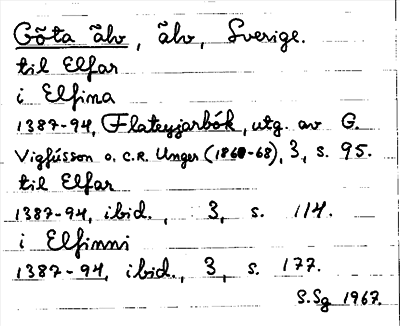 Göta älv, älv, Sverige.
til Elfar
i Elfina
1387-94, Flateyjarbók, utg. av G.
Vigfússon o. C.R. Unger (1860-68), 3, s. 95.
til Elfar
1387-94, ibid., 3, s. 114.
i Elfinni
1387-94, ibid., 3, s. 177.
S.Sg 1967.